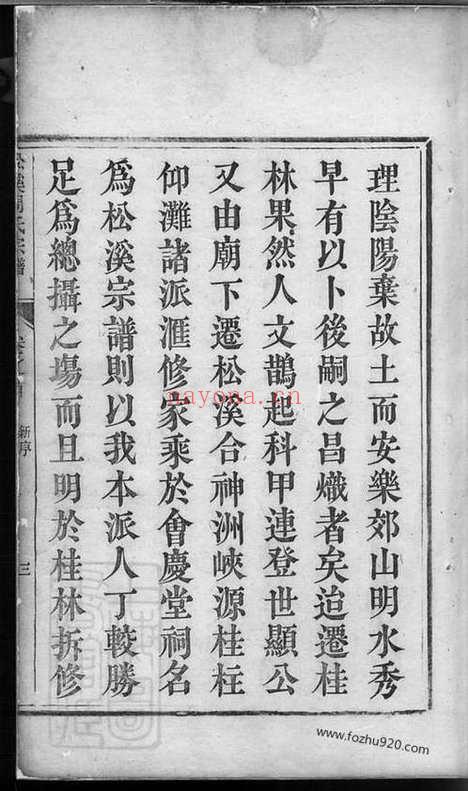 理陰陽棄故土而安樂郊山明水秀
早有以卜後嗣之昌熾者矣迨遷桂
林果然人文鵲起科甲連登世顯公
又由廟下遷松溪合神洲峽源桂柱
仰灘諸派滙修家乘於會慶堂祠名
爲松溪宗譜則以我本派人丁較勝
足爲總攝之塲而且明於桂林拆修
氏宗譜
新序
三
nayona.cn
www.fozhu920.com